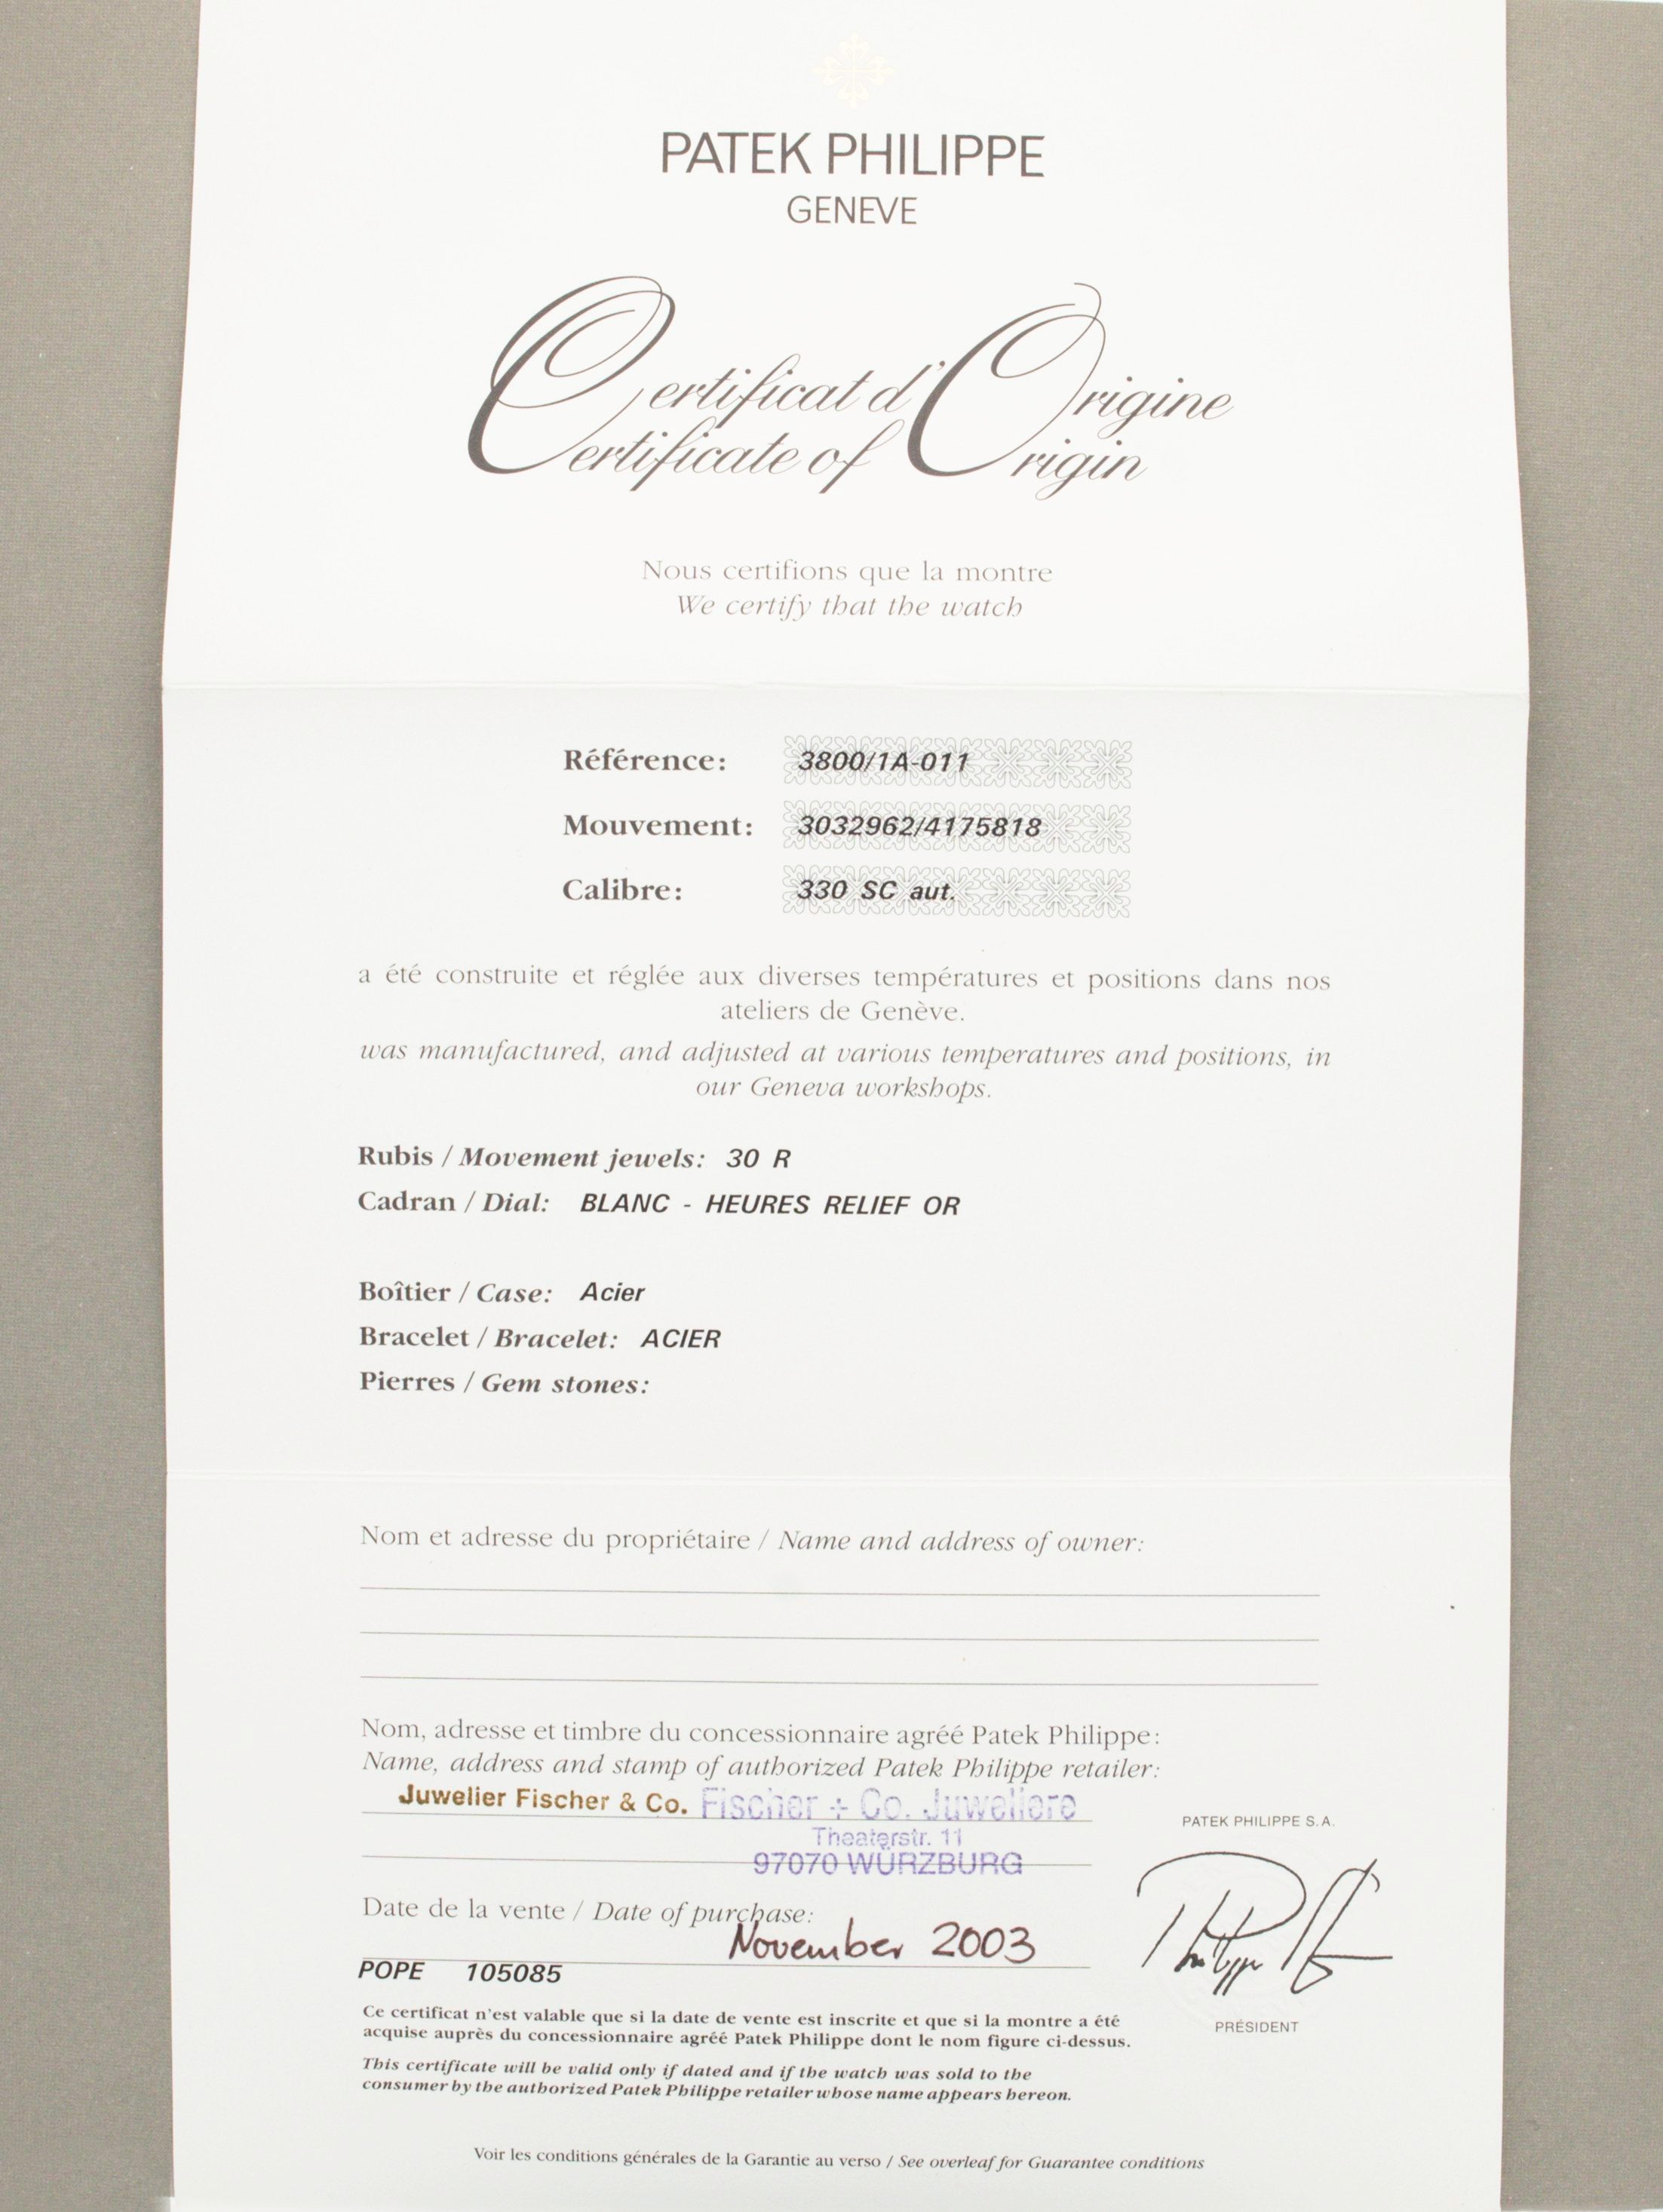 PATEK PHILIPPE
GENEVE
Certificat d'Origine
Certificate of Origin
Nous certifions que la montre
We certify that the watch
Référence: 3800/1A-011
Mouvement: 3032962/4175818
Calibre: 330 SC aut.
a été construite et réglée aux diverses températures et positions dans nos
ateliers de Genève.
was manufactured, and adjusted at various temperatures and positions, in
our Geneva workshops.
Rubis / Movement jewels: 30 R
Cadran / Dial: BLANC - HEURES RELIEF OR
Boîtier / Case: Acier
Bracelet / Bracelet: ACIER
Pierres / Gem stones:
Nom et adresse du propriétaire / Name and address of owner:
Nom, adresse et timbre du concessionnaire agréé Patek Philippe:
Name, address and stamp of authorized Patek Philippe retailer:
Juwelier Fischer & Co. Fischer + Co. Juweliere
Theaterstr. 11
97070 WÜRZBURG
PATEK PHILIPPE S.A.
Date de la vente / Date of purchase:
November 2003
POPE 105085
PRÉSIDENT
Ce certificat n'est valable que si la date de vente est inscrite et que si la montre a été
acquise auprès du concessionnaire agréé Patek Philippe dont le nom figure ci-dessus.
This certificate will be valid only if dated and if the watch was sold to the
consumer by the authorized Patek Philippe retailer whose name appears hereon.
Voir les conditions générales de la Garantie au verso / See overleaf for Guarantee conditions